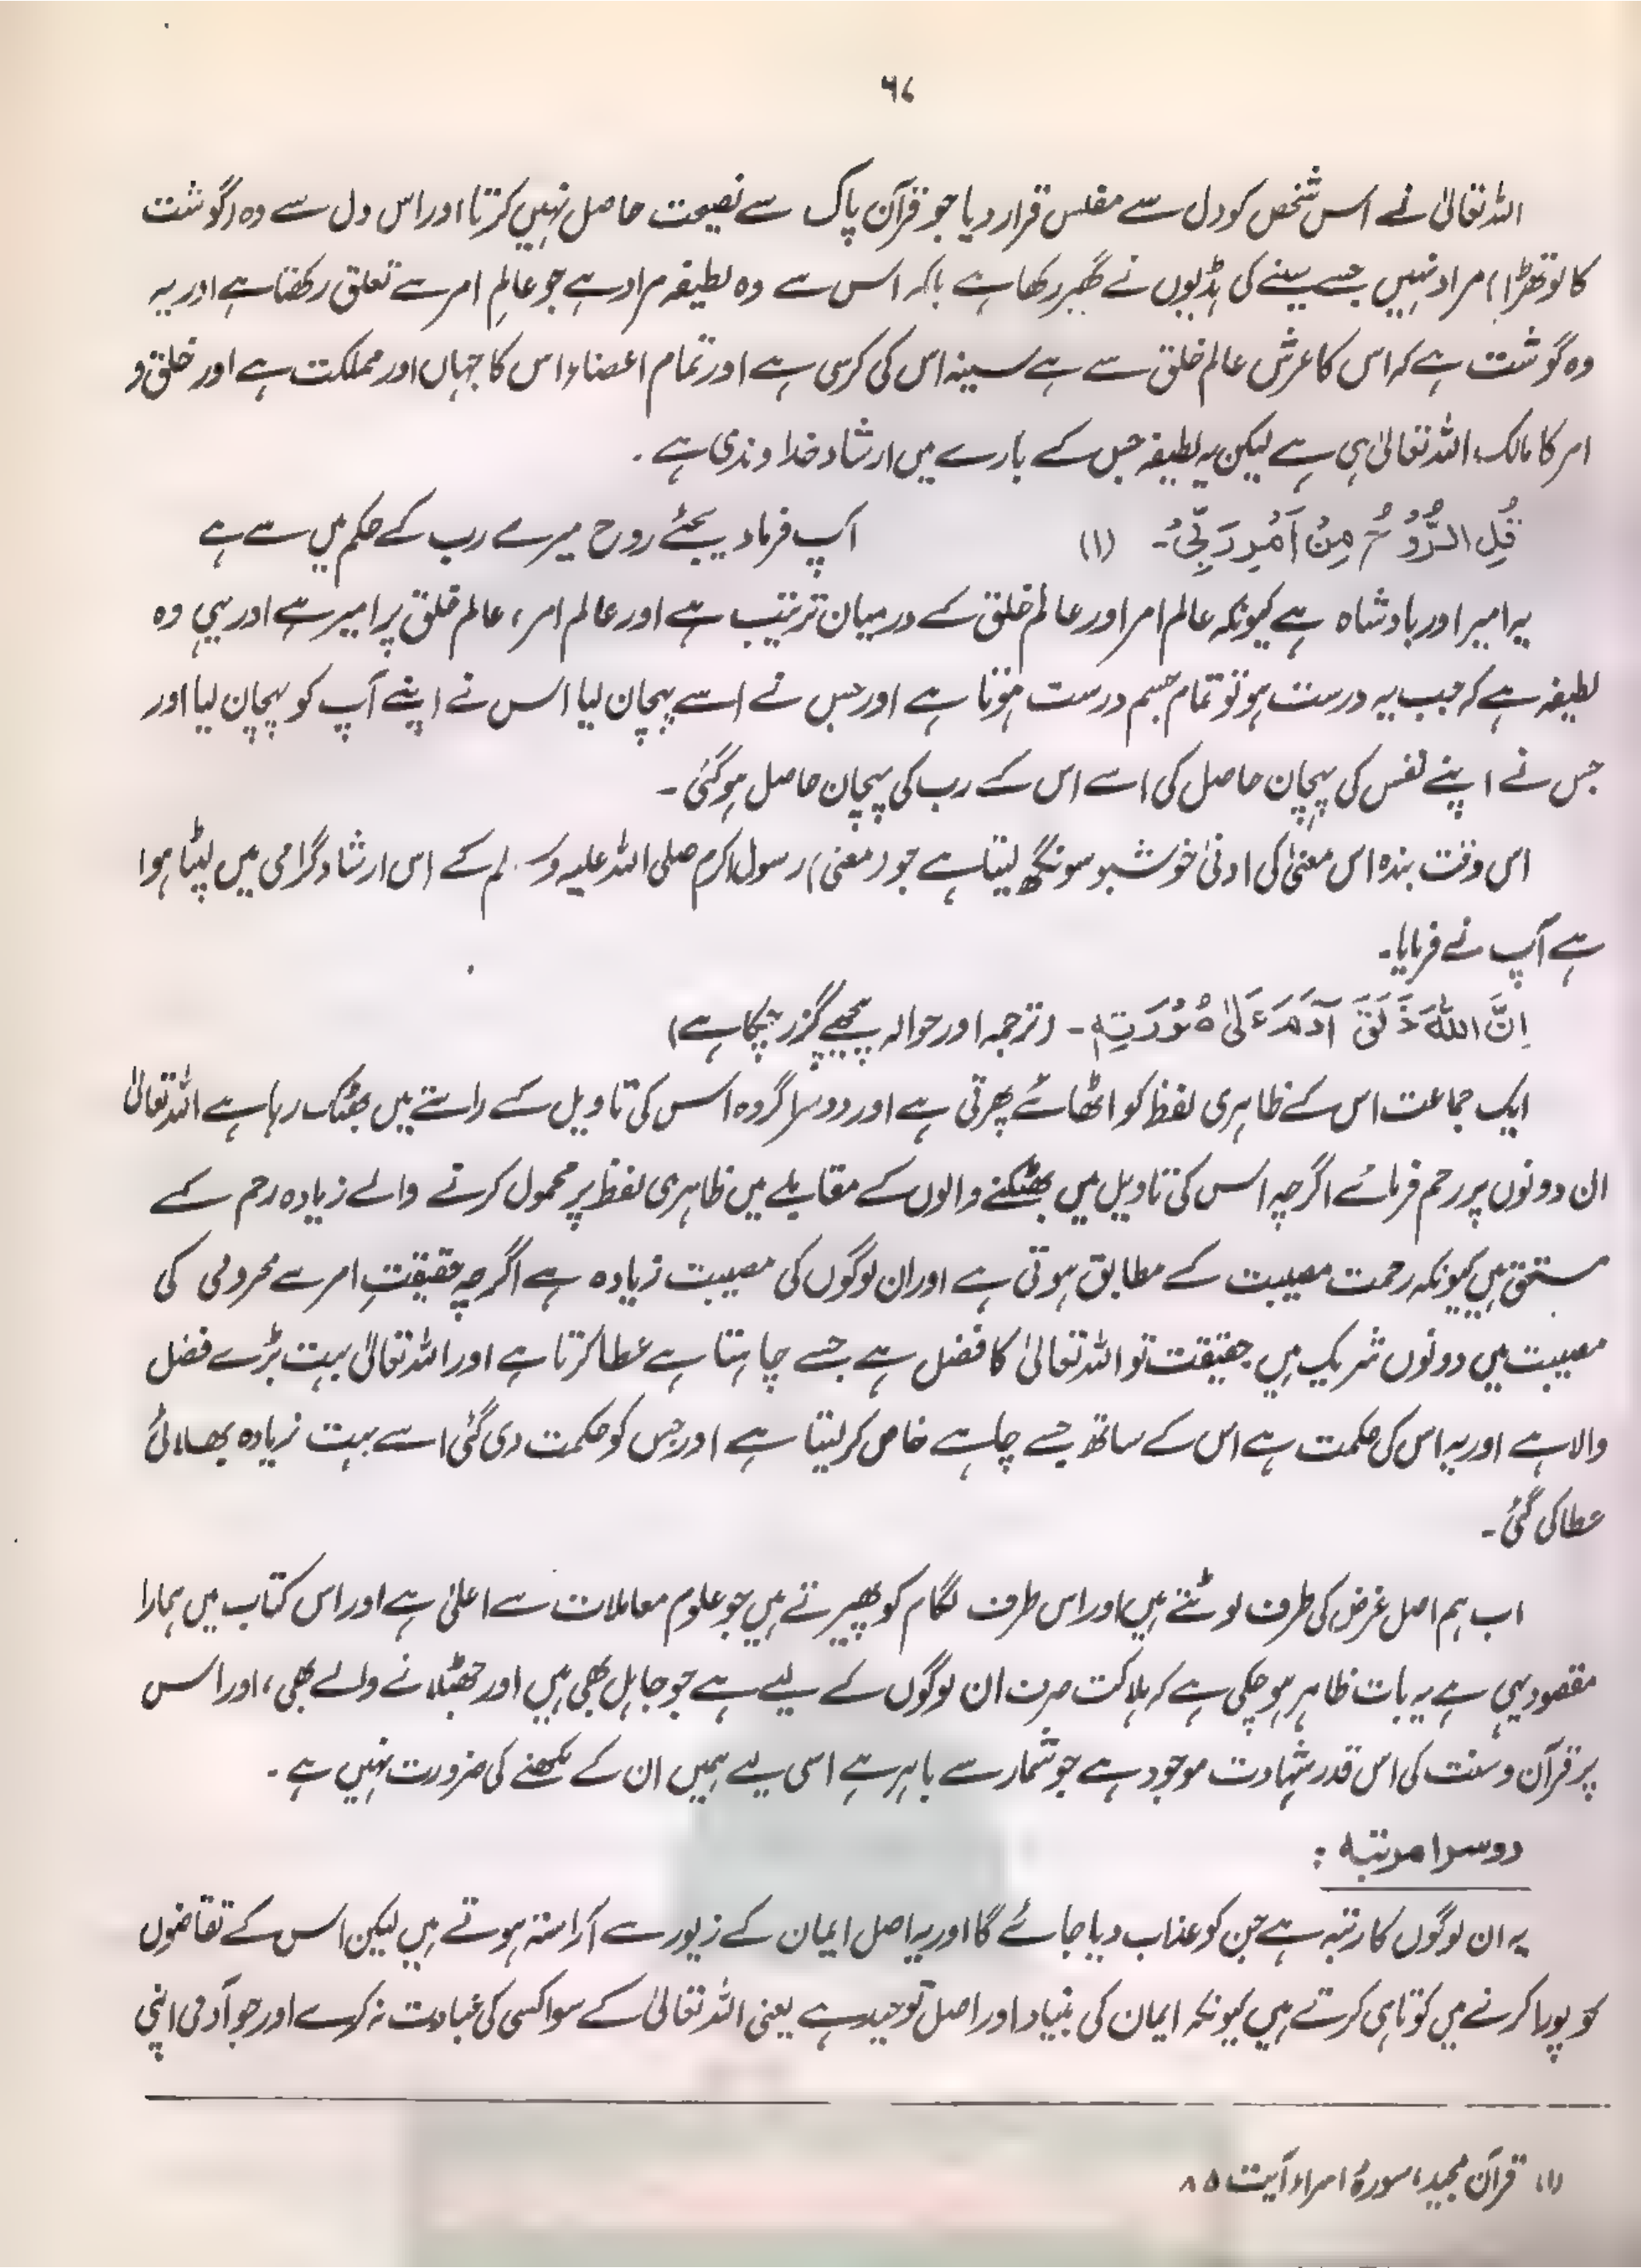 ۶۷
اللہ تعالیٰ نے اس شخص کو دل سے مفلس قرار دیا جو قرآن پاک سے نصیحت حاصل نہیں کرتا اور اس دل سے وہ (گوشت
کا لوتھڑا) مراد نہیں جسے سینے کی ہڈیوں نے گھیر رکھا ہے بلکہ اس سے وہ لطیفہ مراد ہے جو عالمِ امر سے تعلق رکھتا ہے اور یہ
وہ گوشت ہے کہ اس کا عرش عالم خلق سے ہے سینہ اس کی کرسی ہے اور تمام اعضاء اس کا جہاں اور مملکت ہے اور خلق و
امر کا مالک اللہ تعالیٰ ہی ہے لیکن یہ لطیفہ جس کے بارے میں ارشاد خداوندی ہے۔
قُلِ الرُّوْحُ مِنْ اَمْرِ رَبِّیْ۔ (۱) آپ فرما دیجئے روح میرے رب کے حکم میں سے ہے
یہ امیر اور بادشاہ ہے کیونکہ عالم امر اور عالم خلق کے درمیان ترتیب ہے اور عالم امر، عالم خلق پر امیر ہے اور یہی وہ
لطیفہ ہے کہ جب یہ درست ہو تو تمام جسم درست ہوتا ہے اور جس نے اسے پہچان لیا اس نے اپنے آپ کو پہچان لیا اور
جس نے اپنے نفس کی پہچان حاصل کی اسے اس کے رب کی پہچان حاصل ہو گئی۔
اس وقت بندہ اس معنیٰ کی ادنیٰ خوشبو سونگھ لیتا ہے جو (معنی) رسول اکرم صلی اللہ علیہ وسلم کے اس ارشاد گرامی میں لپٹا ہوا
ہے آپ نے فرمایا۔
اِنَّ اللہَ خَلَقَ آدَمَ عَلٰی صُوْرَتِہٖ۔ (ترجمہ اور حوالہ پیچھے گزر چکا ہے)
ایک جماعت اس کے ظاہری لفظ کو اٹھائے پھرتی ہے اور دوسرا گروہ اس کی تاویل کے راستے میں بھٹک رہا ہے اللہ تعالیٰ
ان دونوں پر رحم فرمائے اگرچہ اس کی تاویل میں بھٹکنے والوں کے مقابلے میں ظاہری لفظ پر محمول کرتے والے زیادہ رحم کے
مستحق ہیں کیونکہ رحمت مصیبت کے مطابق ہوتی ہے اور ان لوگوں کی مصیبت زیادہ ہے اگرچہ حقیقتِ امر سے محرومی کی
مصیبت میں دونوں شریک ہیں حقیقت تو اللہ تعالیٰ کا فضل ہے جسے چاہتا ہے عطا کرتا ہے اور اللہ تعالیٰ بہت بڑے فضل
والا ہے اور یہ اس کی حکمت ہے اس کے ساتھ جسے چاہے خاص کر لیتا ہے اور جس کو حکمت دی گئی اسے بہت زیادہ بھلائی
عطا کی گئی۔
اب ہم اصل غرض کی طرف لوٹتے ہیں اور اس طرف لگام کو پھیرتے ہیں جو علوم معاملات سے اعلیٰ ہے اور اس کتاب میں ہمارا
مقصود یہی ہے یہ بات ظاہر ہو چکی ہے کہ ہلاکت صرف ان لوگوں کے لیے ہے جو جاہل بھی ہیں اور جھٹلانے والے بھی، اور اس
پر قرآن و سنت کی اس قدر شہادت موجود ہے جو شمار سے باہر ہے اسی لیے ہمیں ان کے لکھنے کی ضرورت نہیں ہے۔
دوسرا مرتبہ :
یہ ان لوگوں کا رتبہ ہے جن کو عذاب دیا جائے گا اور یہ اصل ایمان کے زیور سے آراستہ ہوتے ہیں لیکن اس کے تقاضوں
کو پورا کرنے میں کوتاہی کرتے ہیں کیونکہ ایمان کی بنیاد اور اصل توحید ہے یعنی اللہ تعالیٰ کے سوا کسی کی عبادت نہ کرے اور جو آدمی اپنی
(۱) قرآن مجید، سورۂ اسراء آیت ۸۵